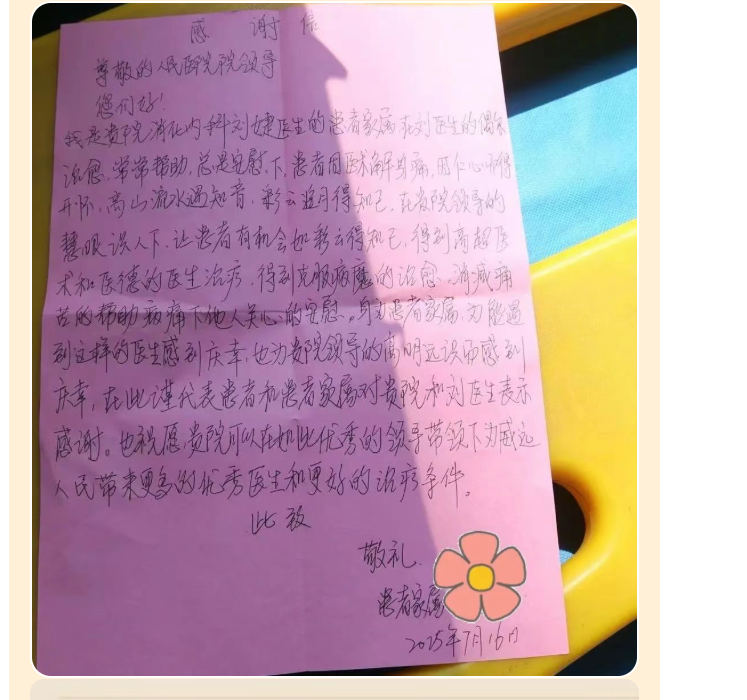 感谢信
尊敬的人民医院院领导
您们好！
我是贵院消化内科刘婕医生的患者家属在刘医生的偶尔
治愈，常常帮助，总是安慰下，患者因医术解身痛，因仁心而得
开怀，高山流水遇知音，彩云追月得知己，在贵院领导的
慧眼识人下，让患者有机会如彩云得知己，得到高超医
术和医德的医生治疗，得到克服病魔的治愈，消减痛
苦的帮助，病痛下他人关心的安慰。身为患者家属，为能遇
到这样的医生感到庆幸，也为贵院领导的高明远识而感到
庆幸，在此谨代表患者和患者家属对贵院和刘医生表示
感谢。也祝愿贵院可以在如此优秀的领导带领下为威远
人民带来更多的优秀医生和更好的治疗条件。
此致
敬礼.
患者家属
2025年7月16日